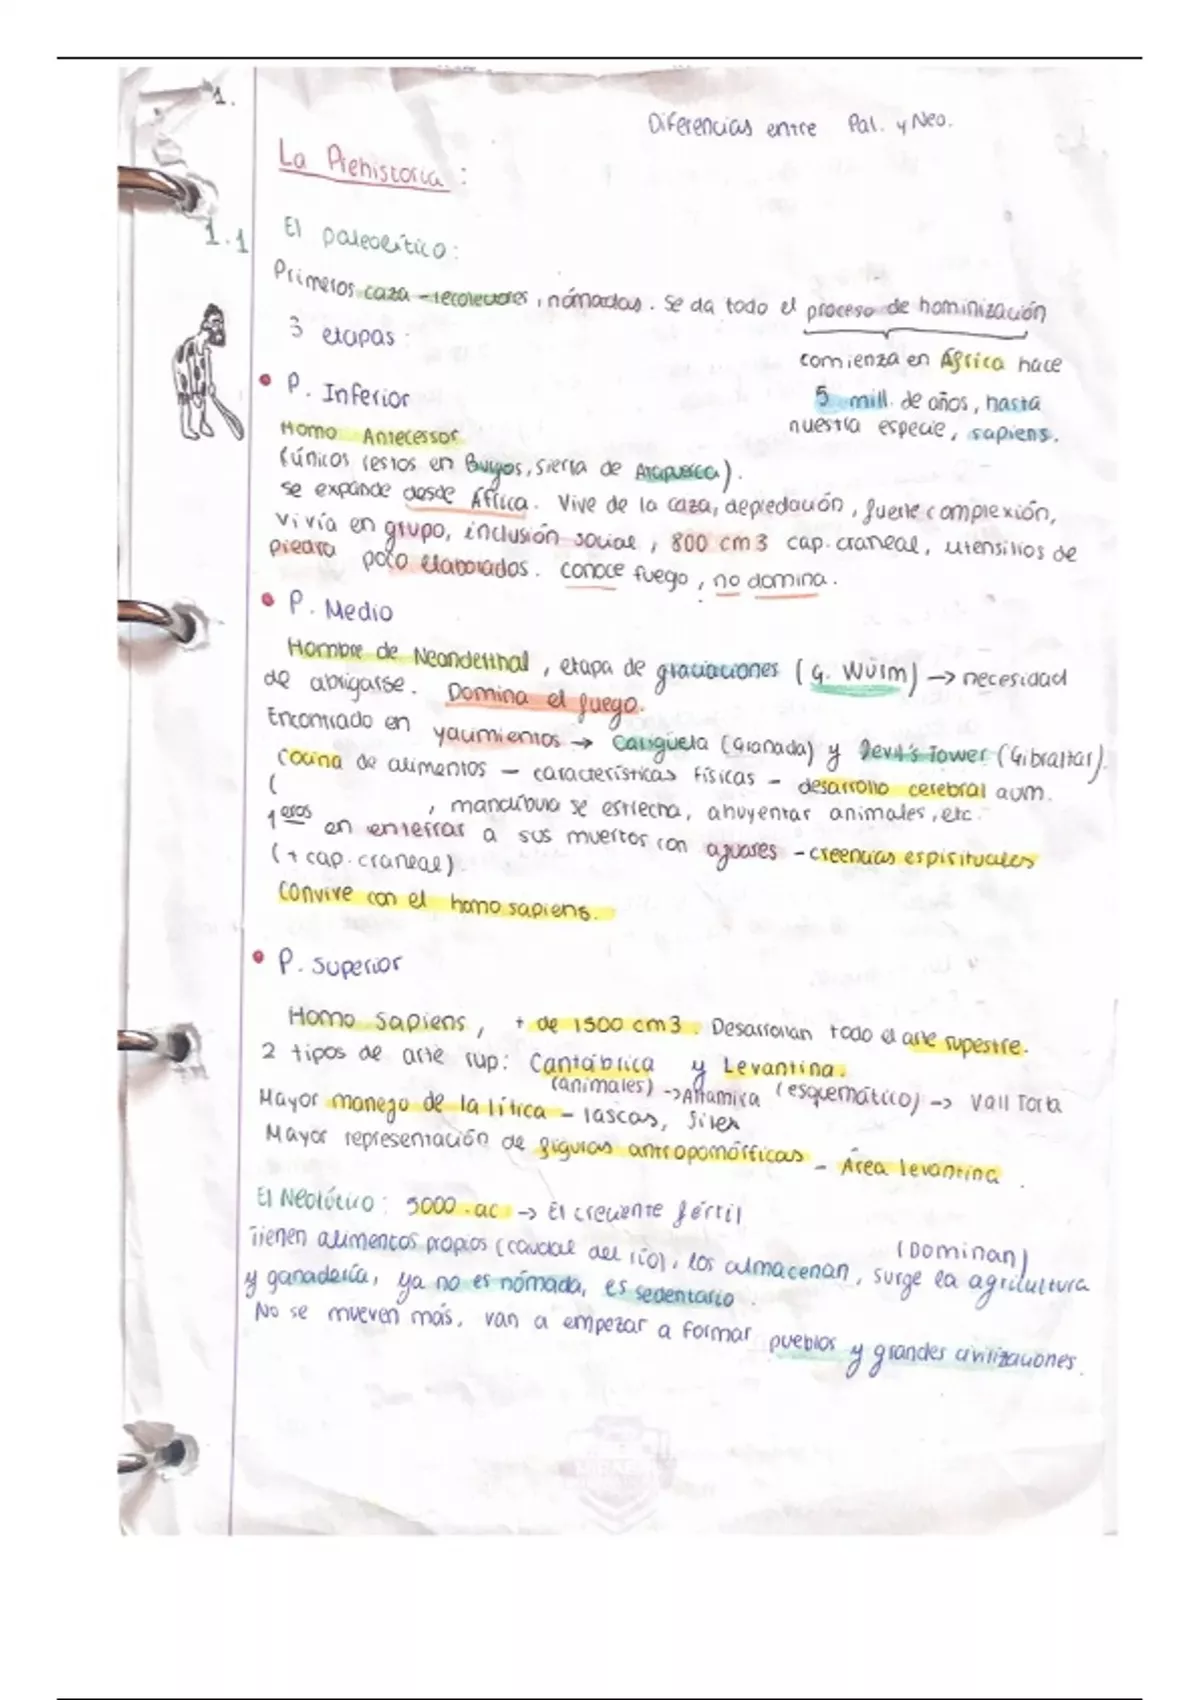 1.
Diferencias entre Pal. y Neo.
La Prehistoria:
1.1 El paleolítico:
Primeros caza-recolectores, nómadas. Se da todo el proceso de hominización
3 etapas:
comienza en África hace
5 mill. de años, hasta
nuestra especie, sapiens.
• P. Inferior
Homo Antecessor
(únicos restos en Burgos, Sierra de Atapuerca).
se expande desde África. Vive de la caza, depredación, fuerte complexión,
vivía en grupo, inclusión social, 800 cm3 cap. craneal, utensilios de
piedra poco elaborados. conoce fuego, no domina.
• P. Medio
Hombre de Neanderthal, etapa de glaciaciones (G. Würm) → necesidad
de abrigarse. Domina el fuego.
Encontrado en yacimientos → Carigüela (Granada) y Devil's Tower (Gibraltar).
Cocina de alimentos - características físicas - desarrollo cerebral aum.
( , mandíbula se estrecha, ahuyentar animales, etc.
1eros en enterrar a sus muertos con ajuares - creencias espirituales
(+ cap. craneal).
Convive con el homo sapiens.
• P. Superior
Homo Sapiens, + de 1500 cm3. Desarrollan todo el arte rupestre.
2 tipos de arte rup: Cantábrica y Levantina.
(animales) → Altamira (esquemático) → Vall Torta
Mayor manejo de la lítica - lascas, Silex
Mayor representación de figuras antropomórficas - Área levantina.
El Neolítico: 5000.ac → El creciente fértil
Tienen alimentos propios (caudal del río), los almacenan, surge la agricultura
(Dominan)
y ganadería, ya no es nómada, es sedentario.
No se mueven más, van a empezar a formar pueblos y grandes civilizaciones.